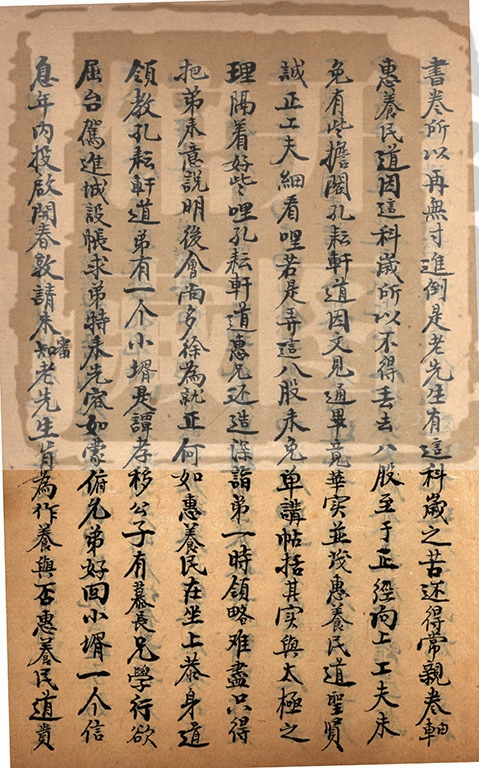 書卷所以再無寸進倒是老先生有這科歲之苦还得常親卷軸
惠養民道因這科歲所以不得去去八股至于正經向上工夫未
免有些擔閣孔耘軒道因文見道畢竟華實並茂惠養民道聖賢
誠正工夫細着哩若是弄這八股未免单講帖括其實與太極之
理隔着好些哩孔耘軒道惠兄还造深詣弟一時領略难盡只得
把弟来意說明後會尚多徐為就正何如惠養民在坐上恭身道
領教孔耘軒道弟有一个小壻是譚孝移公子有慕長兄學行欲
屈台駕進城設帳求弟特来先容如蒙俯允弟好回小壻一个信
息年内投啟開春敦請未審知老先生肯為作養與否惠養民道貴